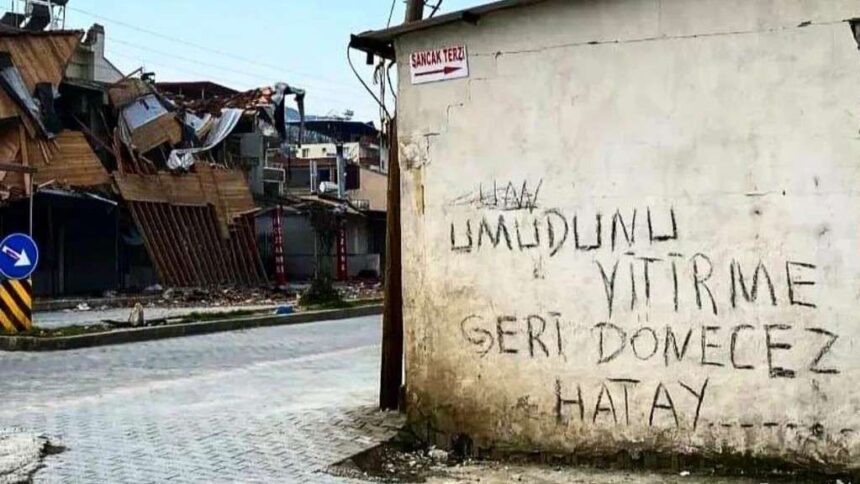 SANCAK TERZİ
UMUDUNU
YİTİRME
GERİ DÖNECEZ
HATAY........